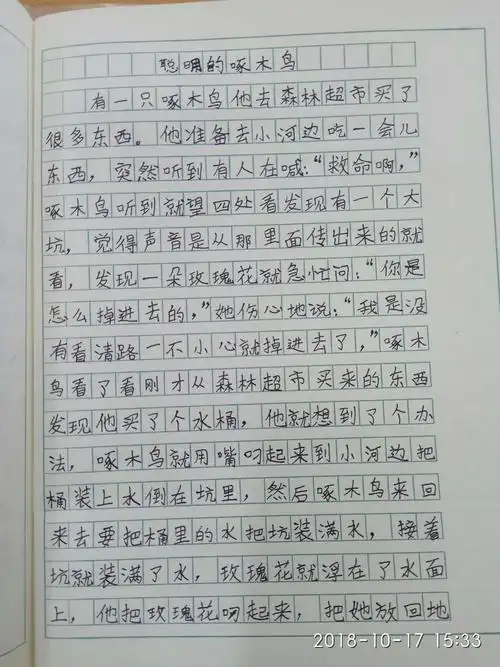 聪明的啄木鸟
有一只啄木鸟他去森林超市买了
很多东西。他准备去小河边吃一会儿
东西，突然听到有人在喊：“救命啊，”
啄木鸟听到就望四处看发现有一个大
坑，觉得声音是从那里面传出来的就
看，发现一朵玫瑰花就急忙问：“你是
怎么掉进去的，”她伤心地说：“我是没
有看清路一不小心就掉进去了，”啄木
鸟看了看刚才从森林超市买来的东西
发现他买了个水桶，他就想到了个办
法，啄木鸟就用嘴叼起来到小河边把
桶装上水倒在坑里，然后啄木鸟来回
来去要把桶里的水把坑装满水，接着
坑就装满了水，玫瑰花就浮在了水面
上，他把玫瑰花叼起来，把她放回地
2018-10-17 15:33